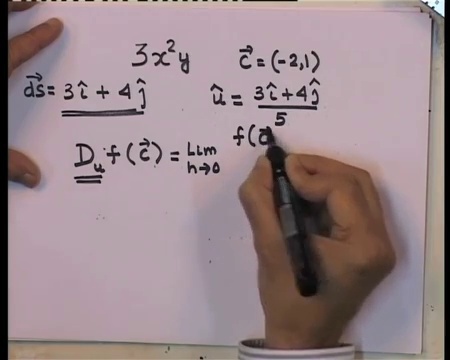 3x²y c⃗ = (-2,1)
d⃗s = 3î + 4ĵ û = 3î+4ĵ / 5
D_u f(c⃗) = Lim h→0 f(c